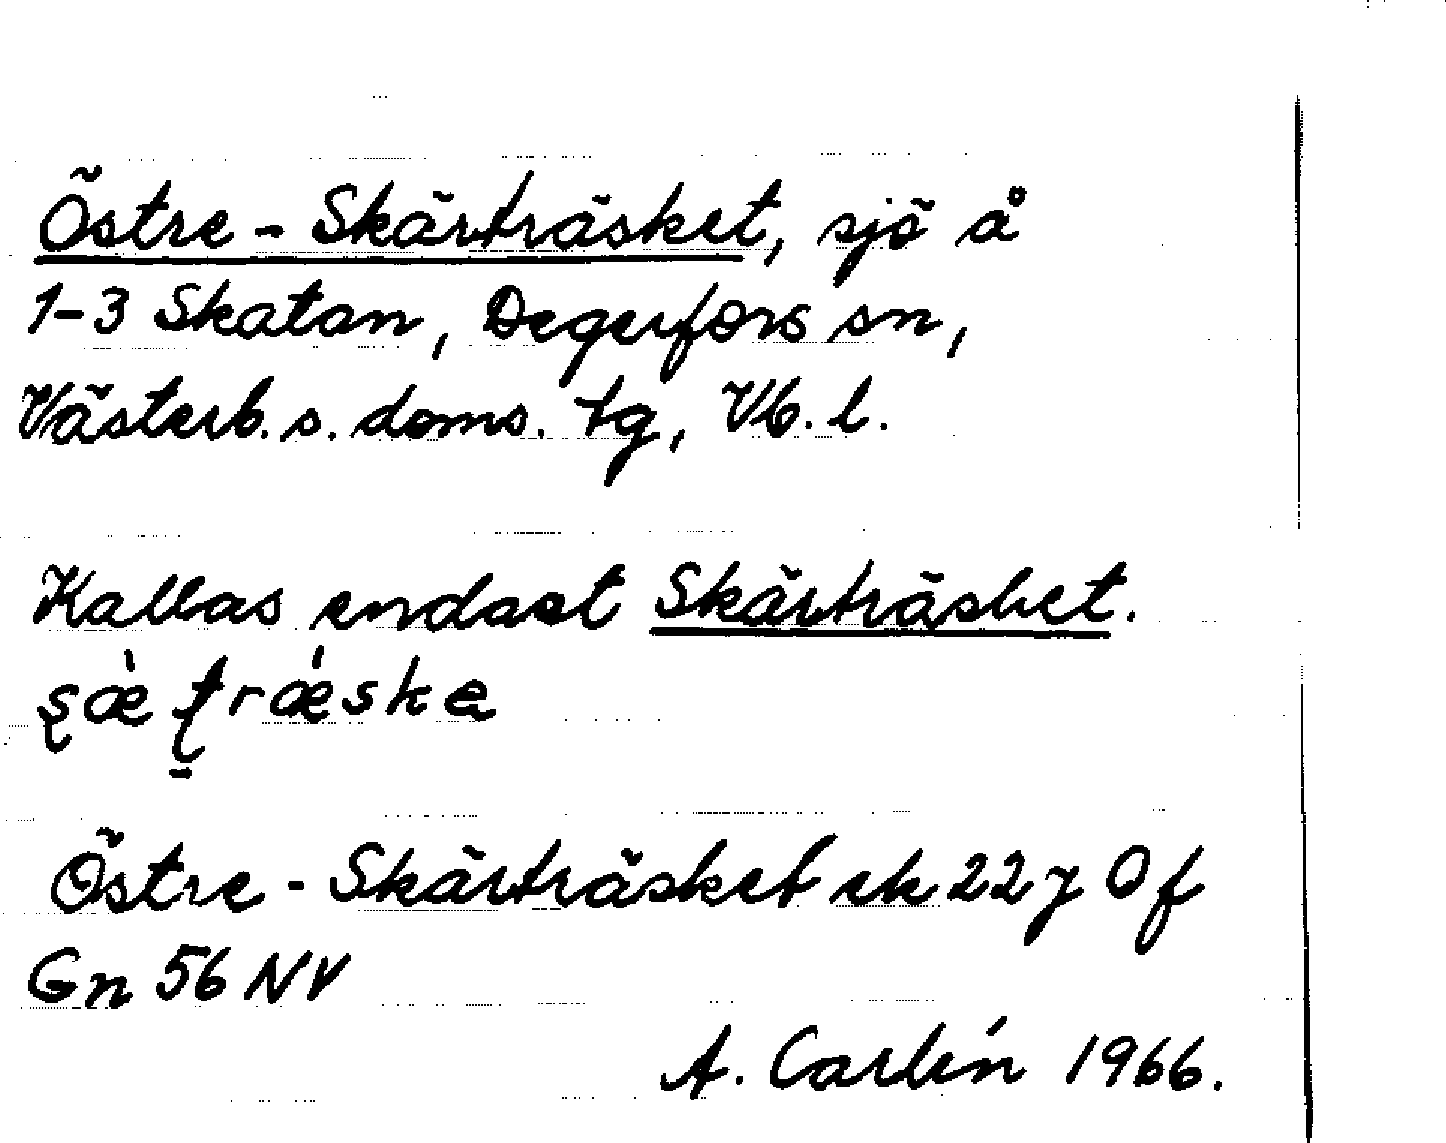 Östre-Skärträsket, sjö å
1-3 Skatan, Degerfors sn,
Västerb. s. doms. tg, Vb. l.
Kallas endast Skärträsket.
Östre-Skärträsket ek 22 j 0 f
Gn 56 NV
A. Carlén 1966.